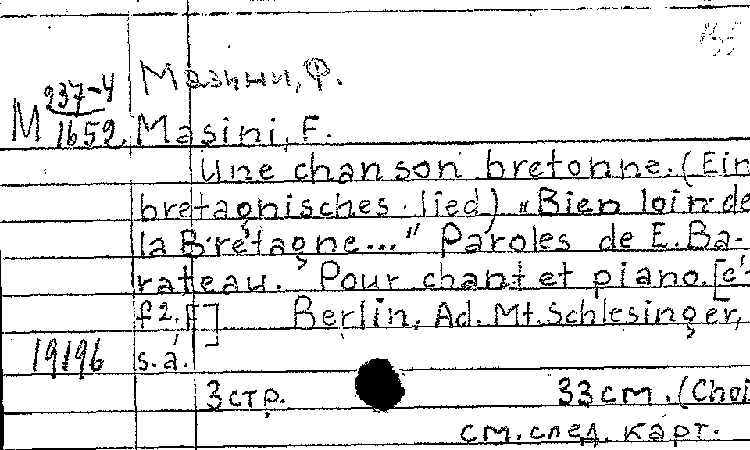 Мазини, Ф.
М 237-4
1652. Masini, F.
Une chanson bretonne. (Ein
bretagnisches lied) "Bien loin de
la Bretagne..." Paroles de E. Ba-
rateau. Pour chant et piano. [c'-
f2.]
Berlin, Ad. Mt. Schlesinger,
19196 s.a.
3 стр. 33 см. (Choi
см. след. карт.